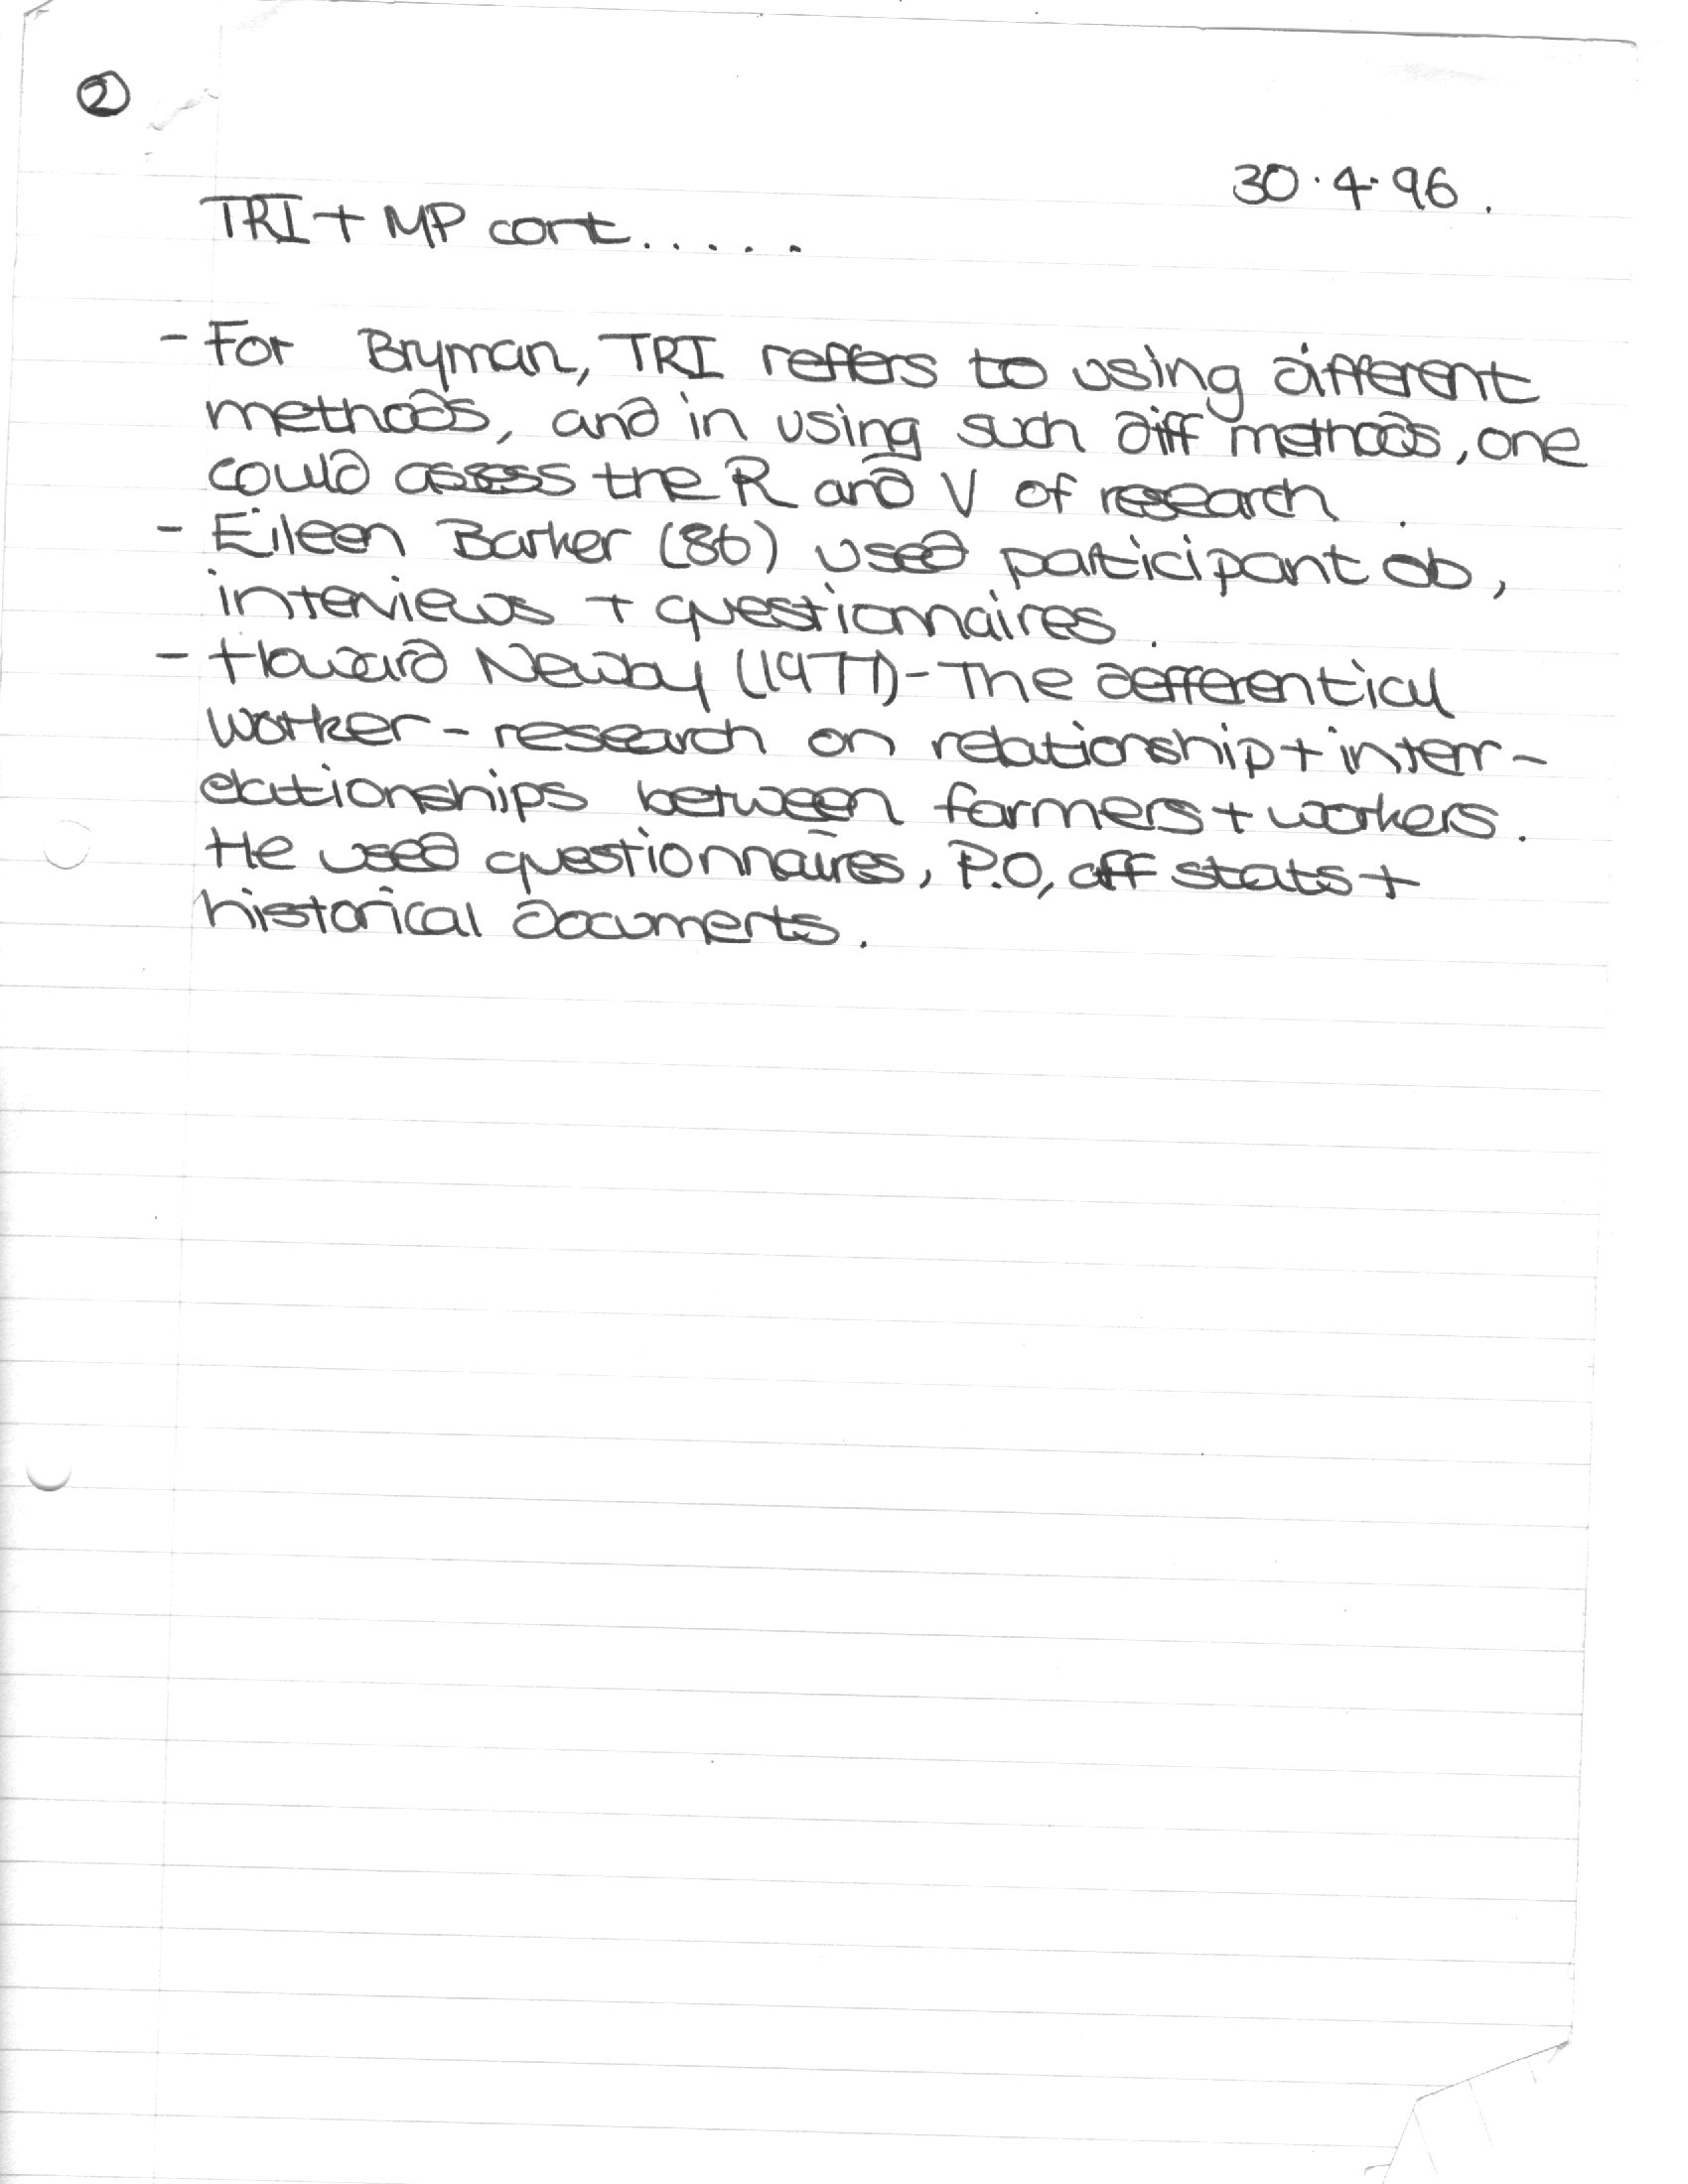 ②
30.4.96.
TRI + MP cont.....
- For Bryman, TRI reffers to using different
methods, and in using such diff methods, one
could assess the R and V of research.
- Eileen Barker (86) used participant ob,
interviews + questionnaires.
- Howard Newby (1977) - The defferential
worker - research on relationship + interr-
elationships between farmers + workers.
He used questionnaires, P.O, off stats +
historical documents.